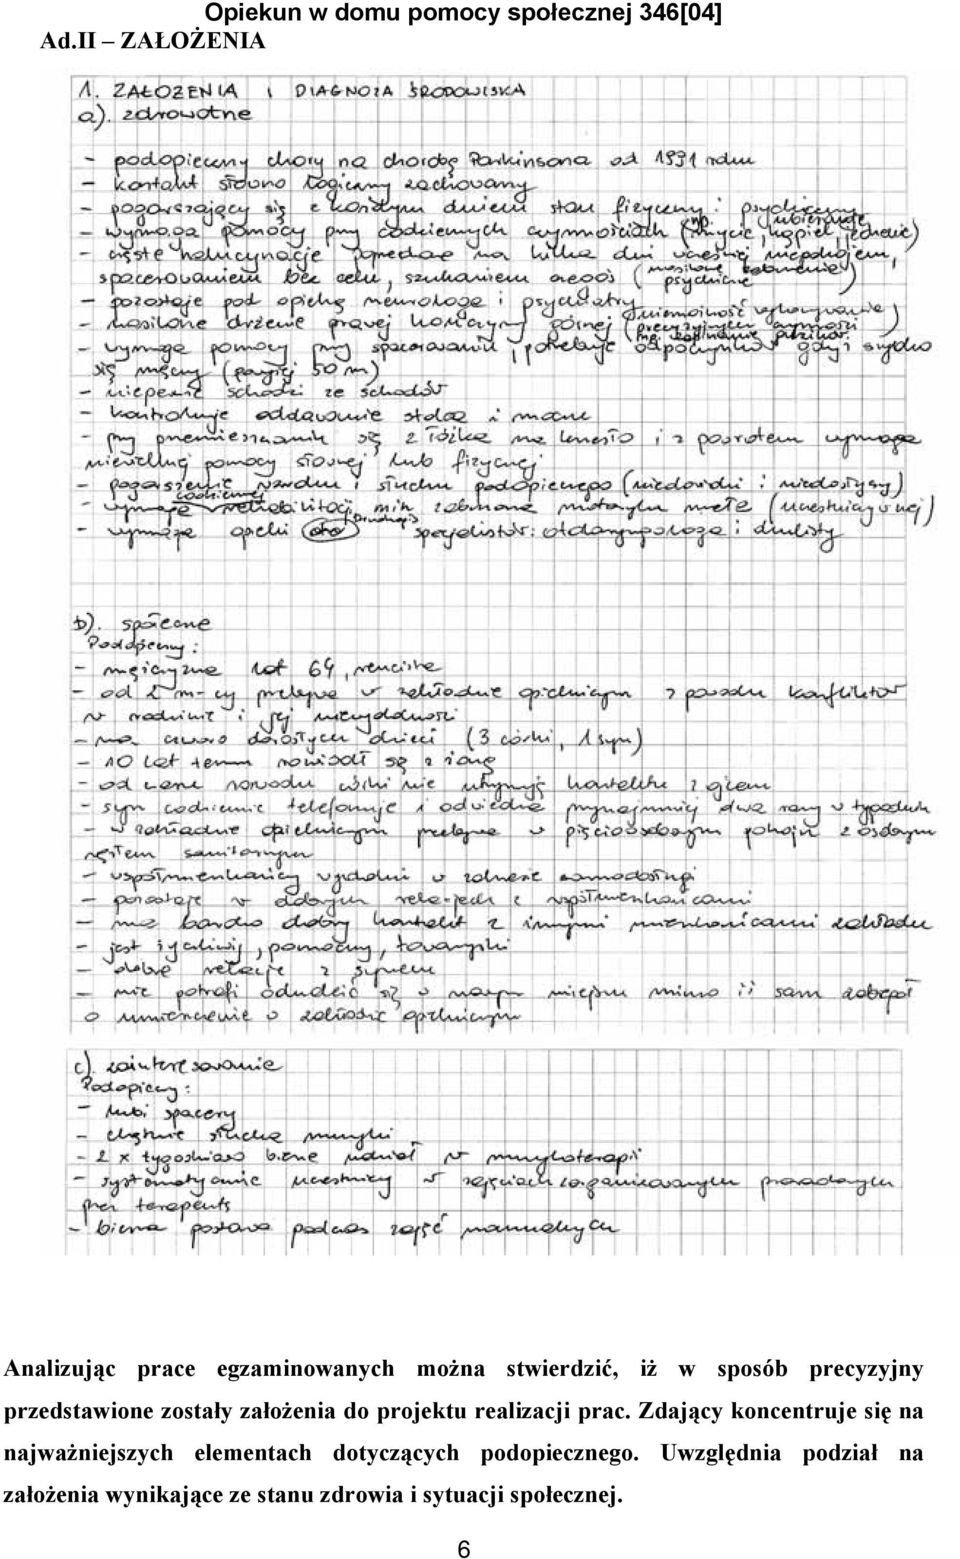 Opiekun w domu pomocy społecznej 346[04]
Ad.II – ZAŁOŻENIA
1. ZAŁOŻENIA I DIAGNOZA ŚRODOWISKA
a). zdrowotne
- podopieczny chory na chorobę Parkinsona od 1991 roku
- kontakt słowno logiczny zachowany
- pogarszający się z każdym dniem stan fizyczny i psychiczny
- wymaga pomocy przy codziennych czynnościach (np. mycie, kąpiel, ubieranie, jedzenie)
- częste halucynacje poprzedzone na kilka dni wcześniej niepokojem,
spacerowaniem bez celu, szukaniem czegoś (nasilone zaburzenie psychiczne)
- pozostaje pod opieką neurologa i psychiatry
- nasilone drżenie prawej kończyny górnej (niemożność wykonywania precyzyjnych czynności np. zapinanie guzików)
- wymaga pomocy przy spacerowaniu, potrzebuje odpoczynków gdyż szybko
się męczy (powyżej 50 m)
- niepewnie schodzi ze schodów
- kontroluje oddawanie stolca i moczu
- przy przemieszczaniu się z łóżka na krzesło i z powrotem wymaga
niewielkiej pomocy słownej lub fizycznej
- pogorszenie wzroku i słuchu podopiecznego (niedowidzi i niedosłyszy)
- wymaga codziennej rehabilitacji, min. zaburzona motoryka mała (uczestniczy w niej)
- wymaga opieki drugiej specjalistów: otolaryngologa i okulisty
b). społeczne
Podopieczny:
- mężczyzna lat 64, rencista
- od 2 m-cy przebywa w zakładzie opiekuńczym z powodu konfliktów
w rodzinie i jej niewydolności
- ma czworo dorosłych dzieci (3 córki, 1 syn)
- 10 lat temu rozwiódł się z żoną
- od czasu rozwodu córki nie utrzymują kontaktu z ojcem
- syn codziennie telefonuje i odwiedza przynajmniej dwa razy w tygodniu
- w zakładzie opiekuńczym przebywa w pięcioosobowym pokoju z osobnym
węzłem sanitarnym
- współmieszkańcy wydolni w zakresie samoobsługi
- pozostaje w dobrych relacjach z współmieszkańcami
- ma bardzo dobry kontakt z innymi mieszkańcami zakładu
- jest życzliwy, pomocny, towarzyski
- dobre relacje z synem
- nie potrafi odnaleźć się w nowym miejscu mimo iż sam zabiegał
o umieszczenie w zakładzie opiekuńczym
c). zainteresowanie
Podopieczny:
- lubi spacery
- chętnie słucha muzyki
- 2 x tygodniowo bierze udział w muzykoterapii
- systematycznie uczestniczy w zajęciach zorganizowanych prowadzonych
przez terapeutę
- bierna postawa podczas zajęć manualnych
Analizując prace egzaminowanych można stwierdzić, iż w sposób precyzyjny
przedstawione zostały założenia do projektu realizacji prac. Zdający koncentruje się na
najważniejszych elementach dotyczących podopiecznego. Uwzględnia podział na
założenia wynikające ze stanu zdrowia i sytuacji społecznej.
6